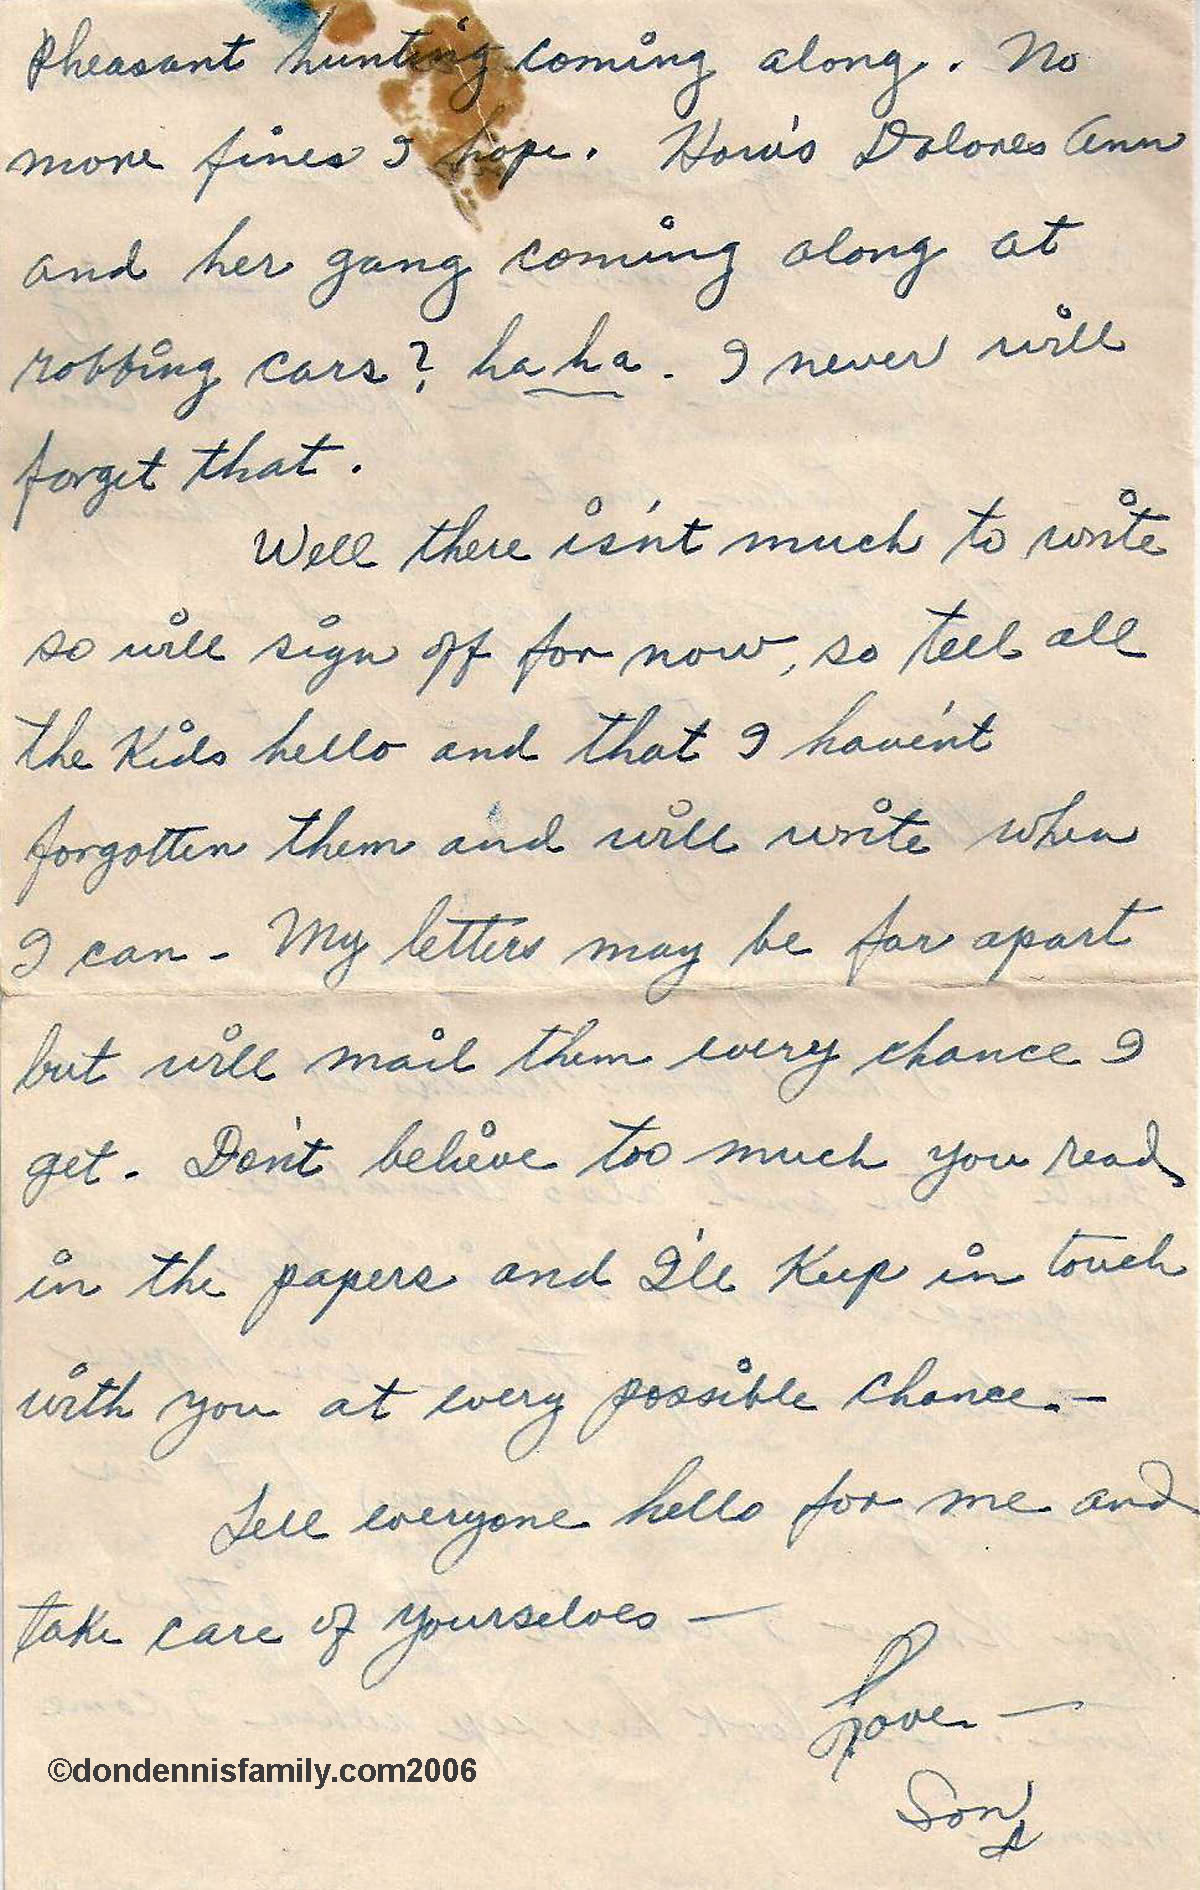 Pheasant hunting coming along. No
more fines I hope. How's Dolores Ann
and her gang coming along at
robbing cars? ha ha. I never will
forget that.
Well there is'nt much to write
so will sign off for now, so tell all
the Kids hello and that I have'nt
forgotten them and will write when
I can - My letters may be far apart
but will mail them every chance I
get. Don't believe too much you read
in the papers and I'le Keep in touch
with you at every possible chance. -
Tell everyone hello for me and
take care of yourselves -
Love -
Son
©dondennisfamily.com2006